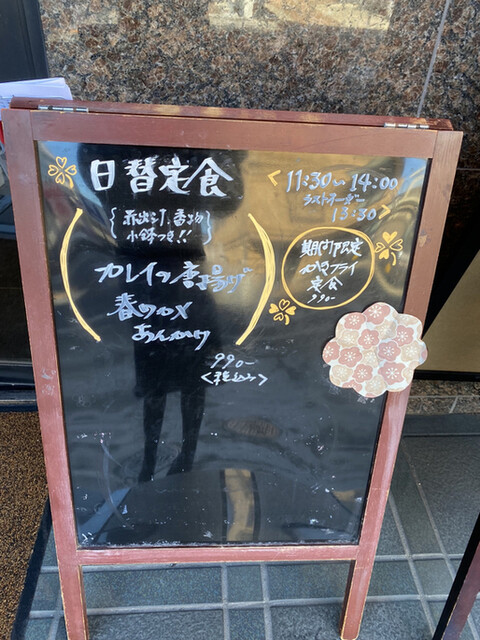 日替定食
11:30〜14:00
ラストオーダー
13:30
{赤出汁、香の物
小鉢つき!!}
カレイの唐揚げ
春ワカメ
あんかけ
990-
<税込み>
期間限定
かきフライ
定食
990-